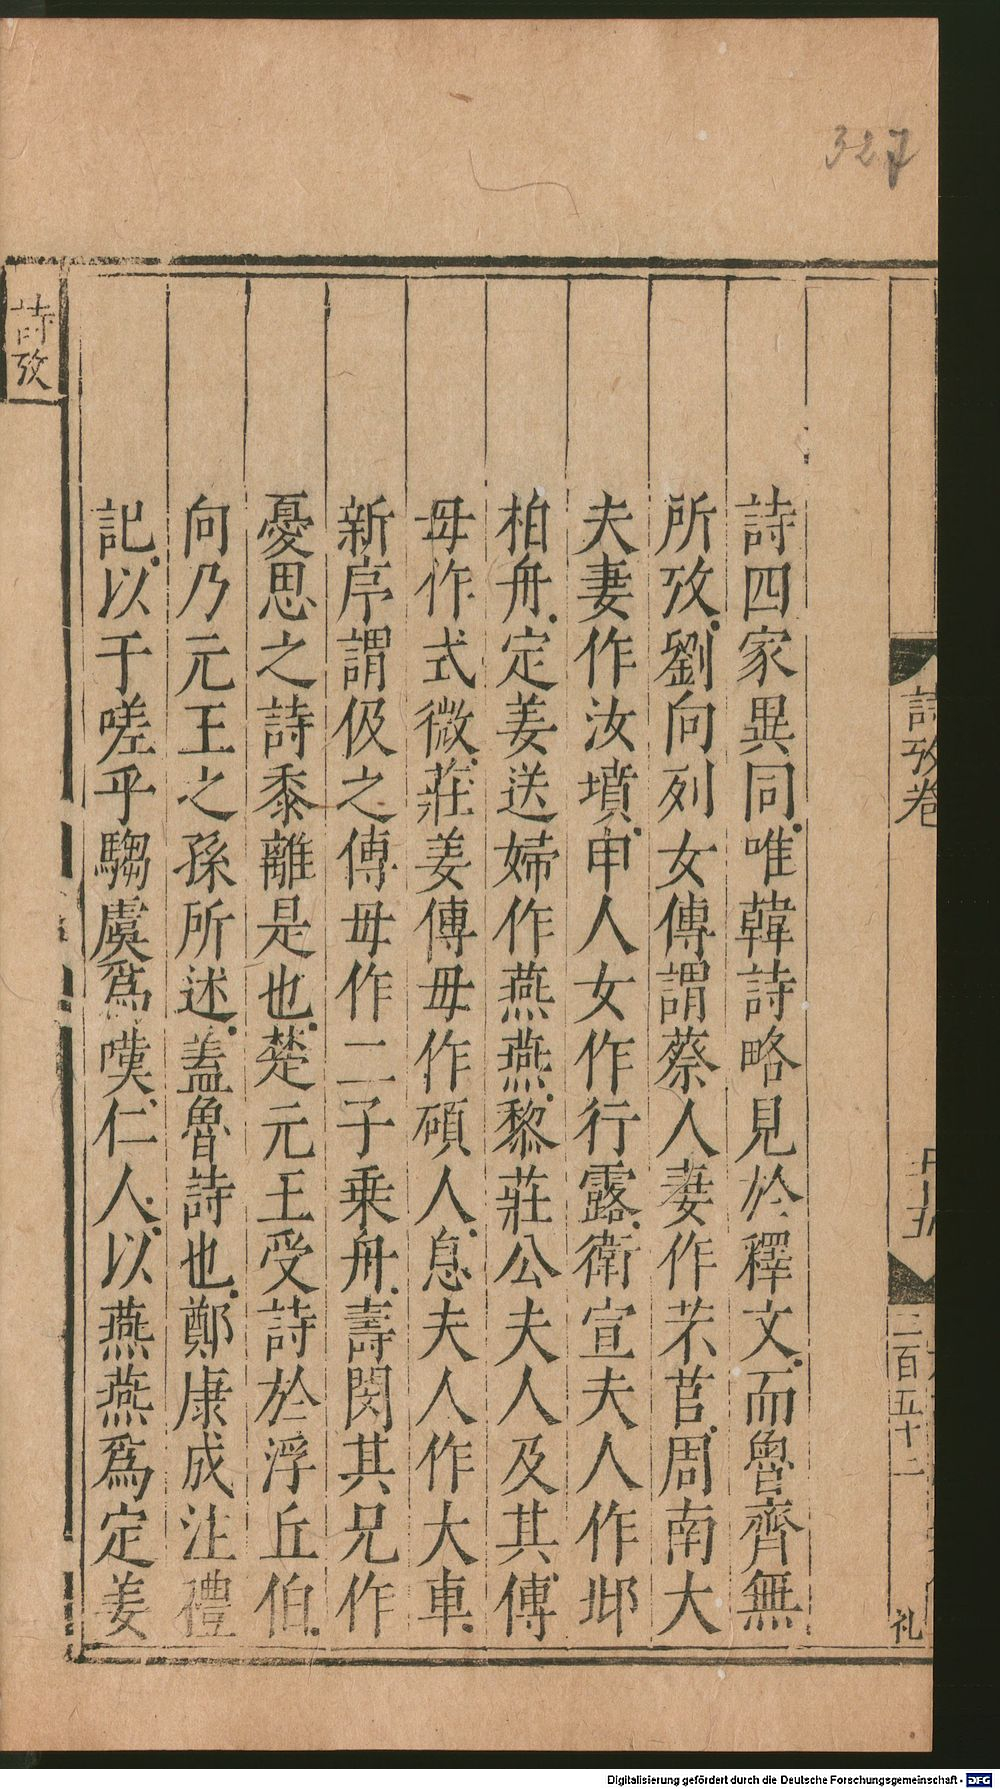 327
詩攷卷
二百五十二
礼
詩四家異同唯韓詩略見於釋文而魯齊無
所攷劉向列女傳謂蔡人妻作芣苢周南大
夫妻作汝墳申人女作行露衛宣夫人作邶
柏舟定姜送婦作燕燕黎莊公夫人及其傅
毋作式微莊姜傅毋作碩人息夫人作大車
新序謂伋之傅毋作二子乗舟壽閔其兄作
憂思之詩黍離是也楚元王受詩於浮丘伯
向乃元王之孫所述蓋魯詩也鄭康成注禮
記以于嗟乎騶虞爲嘆仁人以燕燕爲定姜
詩攷
Digitalisierung gefördert durch die Deutsche Forschungsgemeinschaft - DFG